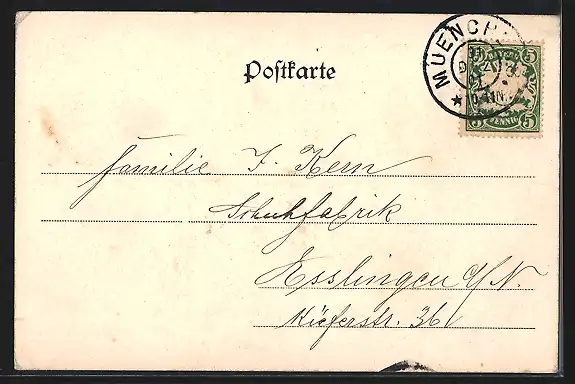 Postkarte
MUENCH
BAYERN
5 5
5 5
PFENNIG
Familie J. Kern
Schuhfabrik
Esslingen a/N.
Kieferstr. 36